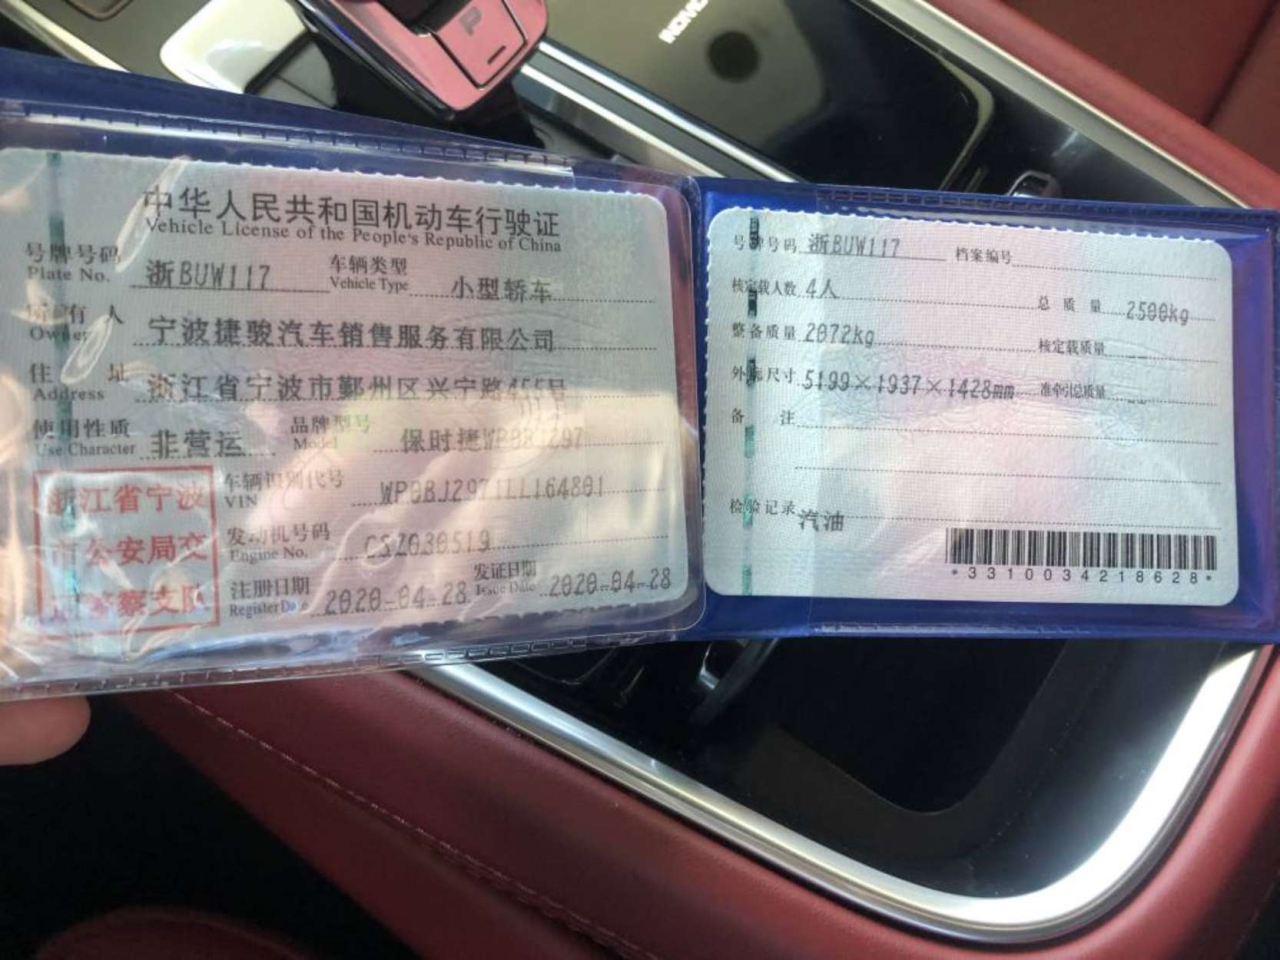 P
HONOR
中华人民共和国机动车行驶证
Vehicle License of the People's Republic of China
号牌号码 浙BUW117 车辆类型 小型轿车
Plate No. Vehicle Type
所有人 宁波捷骏汽车销售服务有限公司
Owner
住址 浙江省宁波市鄞州区兴宁路455号
Address
使用性质 非营运 品牌型号 保时捷WP0BJ297
Use Character Model
浙江省宁波
市公安局交
警察支队
车辆识别代号 WP0BJ2971LL164801
VIN
发动机号码 CSZ030519
Engine No.
注册日期 2020-04-28 发证日期 2020-04-28
Register Date Issue Date
号牌号码 浙BUW117 档案编号
核定载人数 4人 总质量 2500kg
整备质量 2072kg 核定载质量 --
外廓尺寸 5199×1937×1428mm 准牵引总质量 --
备注
检验记录 汽油
*3310034218628*